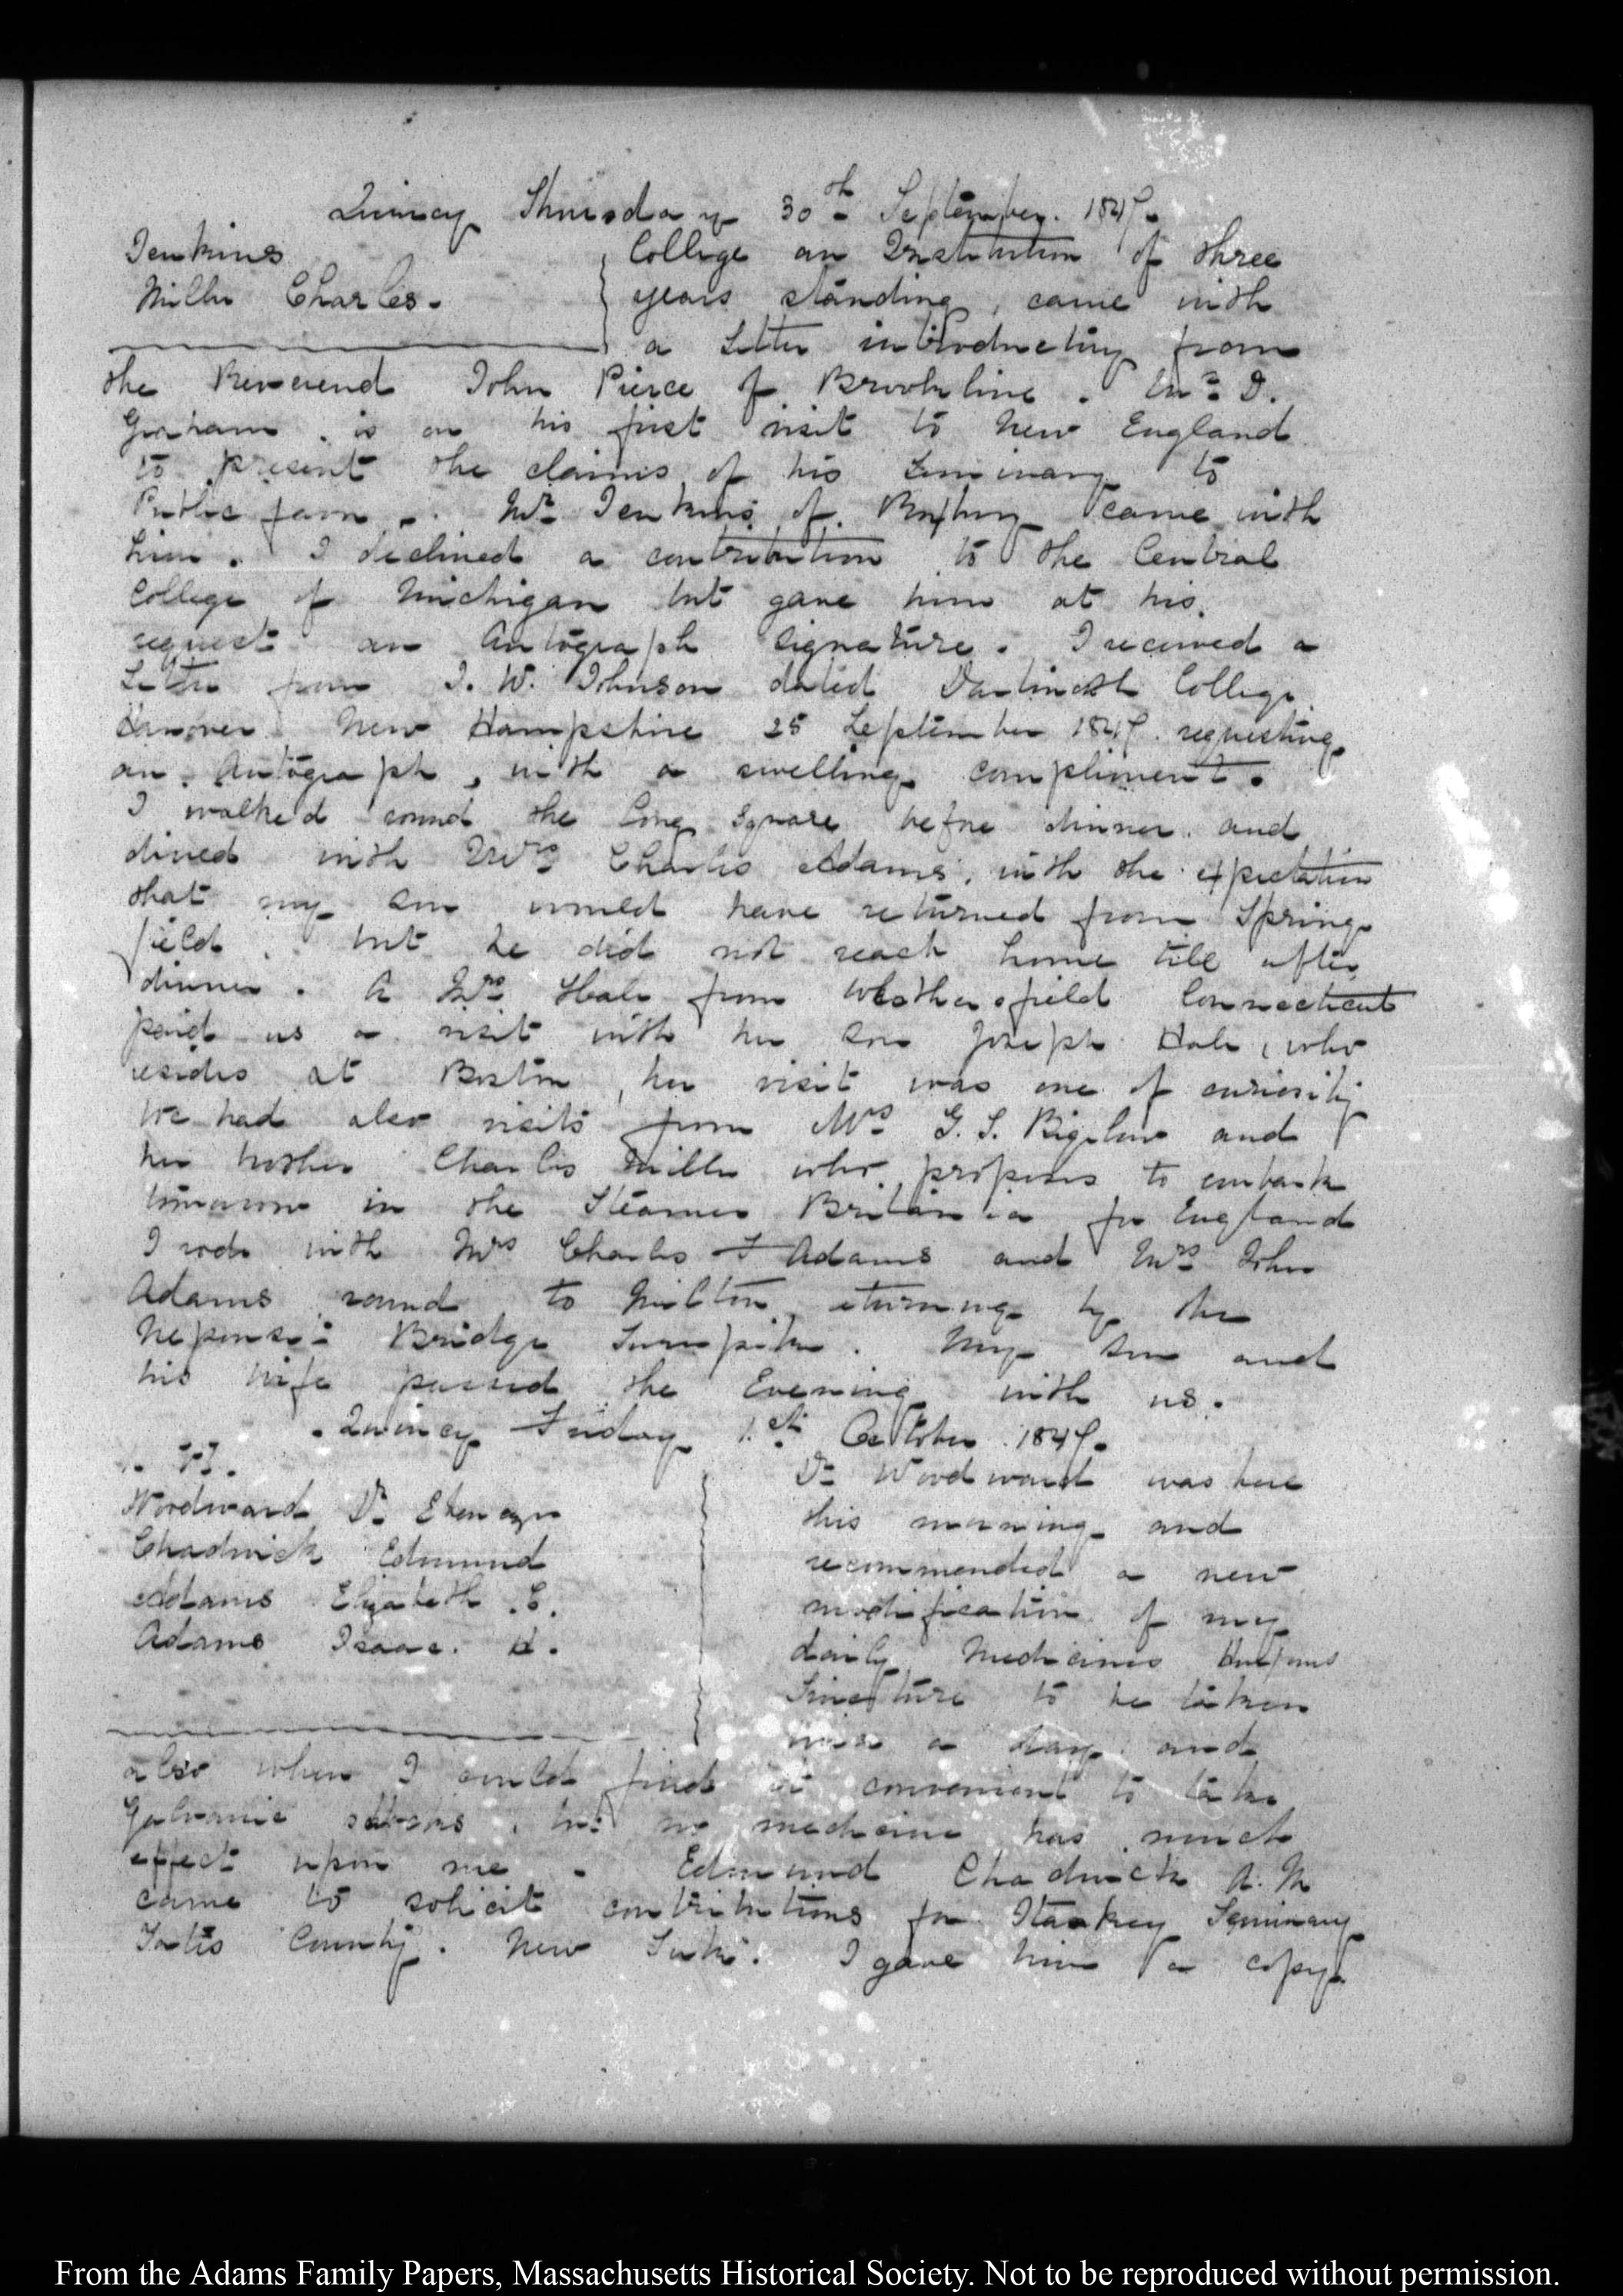 Quincy Thursday 30th September. 1847.
Jenkins
Miller Charles.
College an Institution of three
years standing, came with
a Letter introductory from
the Reverend John Pierce of Brookline. Mr D.
Graham. is on his first visit to New England
to present the claims of his Seminary to
Public favor. Mr Jenkins of Roxbury came with
him. I declined a contribution to the Central
College of Michigan but gave him at his
request an Autograph Signature. I received a
Letter from J. W. Johnson dated Dartmouth College
Hanover New Hampshire 25 September 1847. requesting
an Autograph, with a swelling compliment.
I walked round the long Square before dinner. and
dined with Mrs Charles Adams, with the expectation
that my Son would have returned from Spring-
field. but he did not reach home till after
dinner. A Mrs Hale from Weathersfield Connecticut
paid us a visit with her Son Joseph Hale, who
resides at Boston, her visit was one of curiosity
We had also visits from Mrs G. T. Bigelow and
her brother Charles Miller who proposes to embark
tomorrow in the Steamer Britannia for England
I rode with Mrs Charles F Adams and Mrs John
Adams round to Milton returning by the
Neponset Bridge Turnpike. My Son and
his Wife passed the Evening with us.
Quincy Friday 1.st October 1847.
Woodward Dr Ebenezer
Chadwick Edmund
Adams Elizabeth .C.
Adams Isaac. H.
Dr Woodward was here
this morning and
recommended a new
modification of my
daily Medicines
Tincture to be taken
a day and
also when I could find it convenient to take
Galvanic shocks. but no medicine has much
effect upon me. Edmund Chadwick A. M
came to solicit contributions for Starkey Seminary
Yates County. New York. I gave him a copy
From the Adams Family Papers, Massachusetts Historical Society. Not to be reproduced without permission.